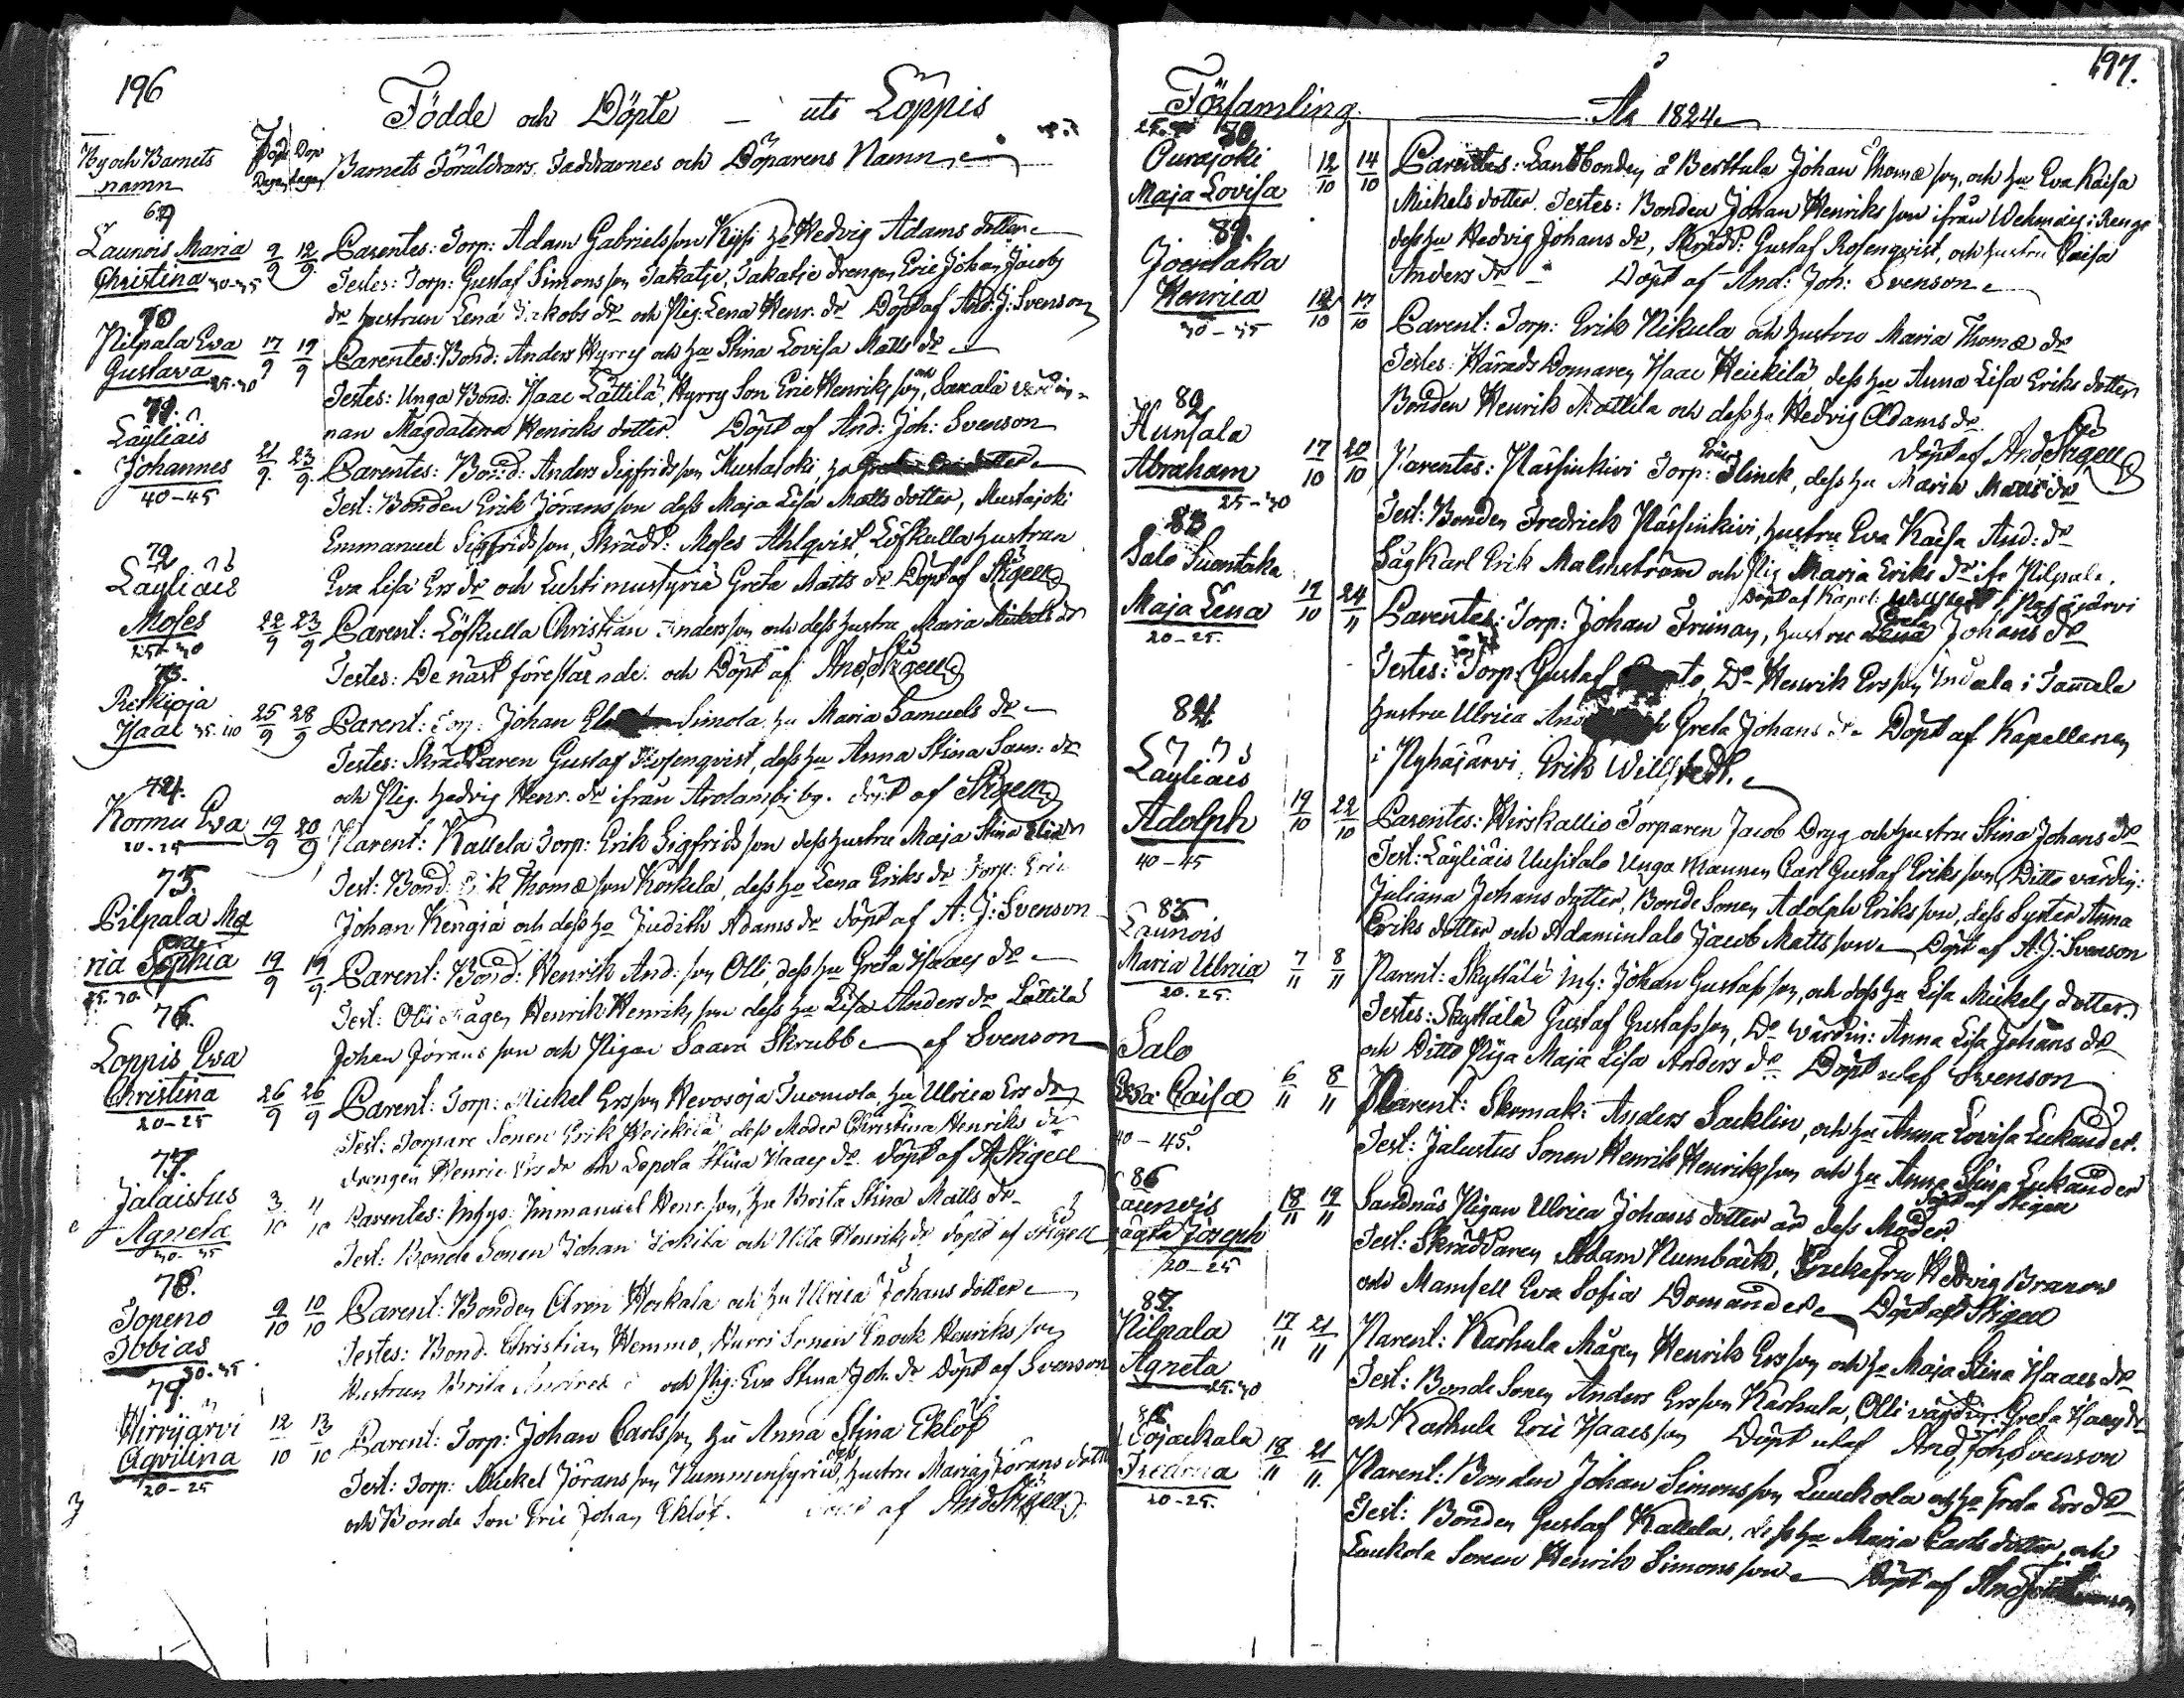 196
Födde och Döpte — uti Loppis
N:o och Barnets namn
Föds Dagen
Dop dagen
Barnets Föräldrars Faddrarnes och Döparens Namn
69
Launois Maria Christina 30-35
9/9 12/9
Parentes: Torp: Adam Gabrielsson Hu Hedvig Adams dotter
Testes: Torp: Gustaf Simonsson Sakatje, Sakatje drengen Eric Johan Jacobs
dr hustrun Lena Jakobs dr och Pig: Lena Henr. dr Döpt af And: J: Svenson
70
Pilpala Eva Gustava 25-30
17/9 19/9
Parentes: Bond: Anders Hyrry och hu Stina Lovisa Matts dr
Testes: Unga Bond: Isaac Lättilä, Hyrry Son Eric Henriksson, och
nan Magdalena Henriks dotter. Döpt af And: Joh: Svenson
71.
Läyliäis Johannes 40-45
21/9 23/9
Parentes: Bond: Anders Sigfridsson Mustajoki, hu
Test: Bonden Erik Jöransson dess Maja Lisa Matts dotter, Mustajoki
Emmanuel Sigfridsson, Skrädd: Moses Ahlqvist, Löfkulla hustrun
Eva Lisa Ers dr och Greta Matts dr Döpt af Stigell
72
Läyliäis Moses 25-30
22/9 23/9
Parent: Löfkulla Christian Andersson och dess hustru Maria Mickels dr
Testes: De näst föreståande och Döpt af And. Stigell
73.
Retkioja Isaac 35-40
25/9 28/9
Parent: Torp: Johan Simola, hu Maria Samuels dr
Testes: Skräddaren Gustaf Rosenqvist, dess hu Anna Stina Sam: dr
och Pig. Hedvig Henr. dr ifrån Arolambi by. döpt af Stigell
74.
Kormu Eva 20-25
19/9 20/9
Parent: Kallela Torp: Erik Sigfridsson dess hustru Maja Stina
Test: Bond: Erik Thomæson Koskela, dess hu Lena Eriks dr Torp: Eric
Johan Kengiä och dess hu Judith Adams dr döpt af A: J: Svenson
75.
Pilpala Maria Sophia 25-30
19/9 19/9
Parent: Bond: Henrik And:son Olli, dess hu Greta Isaacs dr
Test: Olli Mågen Henrik Henriksson dess hu Lisa Anders dr Lättilä
Johan Jöransson och Pigan Saara Skrubb af Svenson
76.
Loppis Eva Christina 20-25
26/9 26/9
Parent: Torp: Mickel Ersson Hevosoja Tuomola, hu Ulrica Ers dr
Test: Torpare Sonen Erik Heickilä dess Moder Christina Henriks dr
drengen Henric Ers dr och Lopola Stina Isaacs dr. Döpt af A Stigell
77.
Jalaistus Agneta 30-35
3/10 4/10
Parentes: Inhys: Immanuel Henr.son, hu Brita Stina Matts dr
Test: Bonde Sonen Johan och Henriks dr döpt af Stigell
78.
Topeno Tobias 30-35
9/10 10/10
Parent: Bonden Aron Hoskala och hu Ulrica Johans dotter
Testes: Bond. Christian Hemmo, Hurri Sonen Enock Henriksson
Hustrun Brita och Pig: Eva Stina Joh. dr Döpt af Svenson
79.
Hirvijärvi Aqvilina 20-25
12/10 13/10
Parent: Torp: Johan Carlsson hu Anna Stina Eklöf
Test: Torp: Mickel Jöransson Nummensyrjä, hustru Maria Jörans dotter
och Bonde Son Eric Johan Eklöf. Döpt af And Stigell
197.
Församling. År 1824
80
Ourajoki Maja Lovisa
12/10 14/10
Parentes: Landbonden å Berttula Johan Thomæson, och hu Eva Kaisa
Mickels dotter. Testes: Bonden Johan Henriksson ifrån i Renge
dess hu Hedvig Johans dr, Skrädd: Gustaf Rosenqvist, och hustru Caisa
Anders dr — Döpt af And: Joh: Svenson
81.
Joentaka Henrica 30-35
12/10 17/10
Parent: Torp: Erik Nikula och hustru Maria Thomæ dr
Testes: Härads Domaren Isaac Heickilä, dess hu Anna Lisa Eriks dotter
Bonden Henrik Mattila och dess hu Hedvig Adams dr.
Döpt af And Stigell
82
Hunsala Abraham 25-30
17/10 20/10
Parentes: Näsinkivi Torp: Flinck, dess hu Maria Matts dr
Test: Bonden Fredrick Näsinkivi, hustru Eva Kaisa And: dr
Såg Karl Erik Malmström och Pig Maria Eriks dr ifr Pilpala.
Döpt af Kapel:
83
Salo Suontaka Maja Lena 20-25.
19/10 24/11
Parentes: Torp: Johan Friman, hustru Greta Johans dr
Testes: Torp: Gustaf Do Henrik Ersson i Tamela
hustru Ulrica Greta Johans dr Döpt af Kapellanen
i Pyhäjärvi, Erik Willstedt.
84
Läyliäis Adolph 40-45
19/10 22/10
Parentes: Hirskallio Torparen Jacob Dryg och hustru Stina Johans dr
Test: Läyliäis Uusitalo Unga Mannen Carl Gustaf Eriksson, Ditto värdin:
Juliana Johans dotter, Bonde Sonen Adolph Eriksson, dess Syster Anna
Eriks dotter och Adamintalo Jacob Mattsson Döpt af A: J: Svenson
85
Launois Maria Ulrica 20-25.
7/11 8/11
Parent: Skyttälä Inh: Johan Gustafsson, och dess hu Lisa Mickels dotter.
Testes: Skyttälä Gustaf Gustafsson, Do Wärdin: Anna Lisa Johans dr
och Ditto Piga Maja Lisa Anders dr Döpt utaf Svenson
Salo Eva Caisa 40-45.
6/11 8/11
Parent: Skomak: Anders Sacklin, och hu Anna Lovisa Lukander.
Test: Jalustus Sonen Henrik Henriksson och hu Anna Stina Lukander
Döpt af Stigell
86
Launois Joseph 20-25
18/11 19/11
Sandnäs Pigan Ulrica Johans dotter är dess Moder
Test: Skräddaren Adam Numbäck, Enkefru Hedvig
och Mamsell Eva Sofia Domander Döpt af Stigell
87.
Pilpala Agneta 25-30
17/11 21/11
Parent: Karhula Mågen Henrik Ersson och hu Maja Stina Isaacs dr
Test: Bonde Sonen Anders Ersson Karhula, Olli värdin: Greta Isaacs dr
och Karhula Eric Isaacsson Döpt utaf And Joh Svenson
88
Wojackala 20-25.
18/11 21/11.
Parent: Bonden Johan Simonsson Luuckola och hu Greta Ers dr
Test: Bonden Gustaf Kallela, dess hu Maria Carls dotter, och
Laukola Sonen Henrik Simonsson Döpt af And Joh Svenson